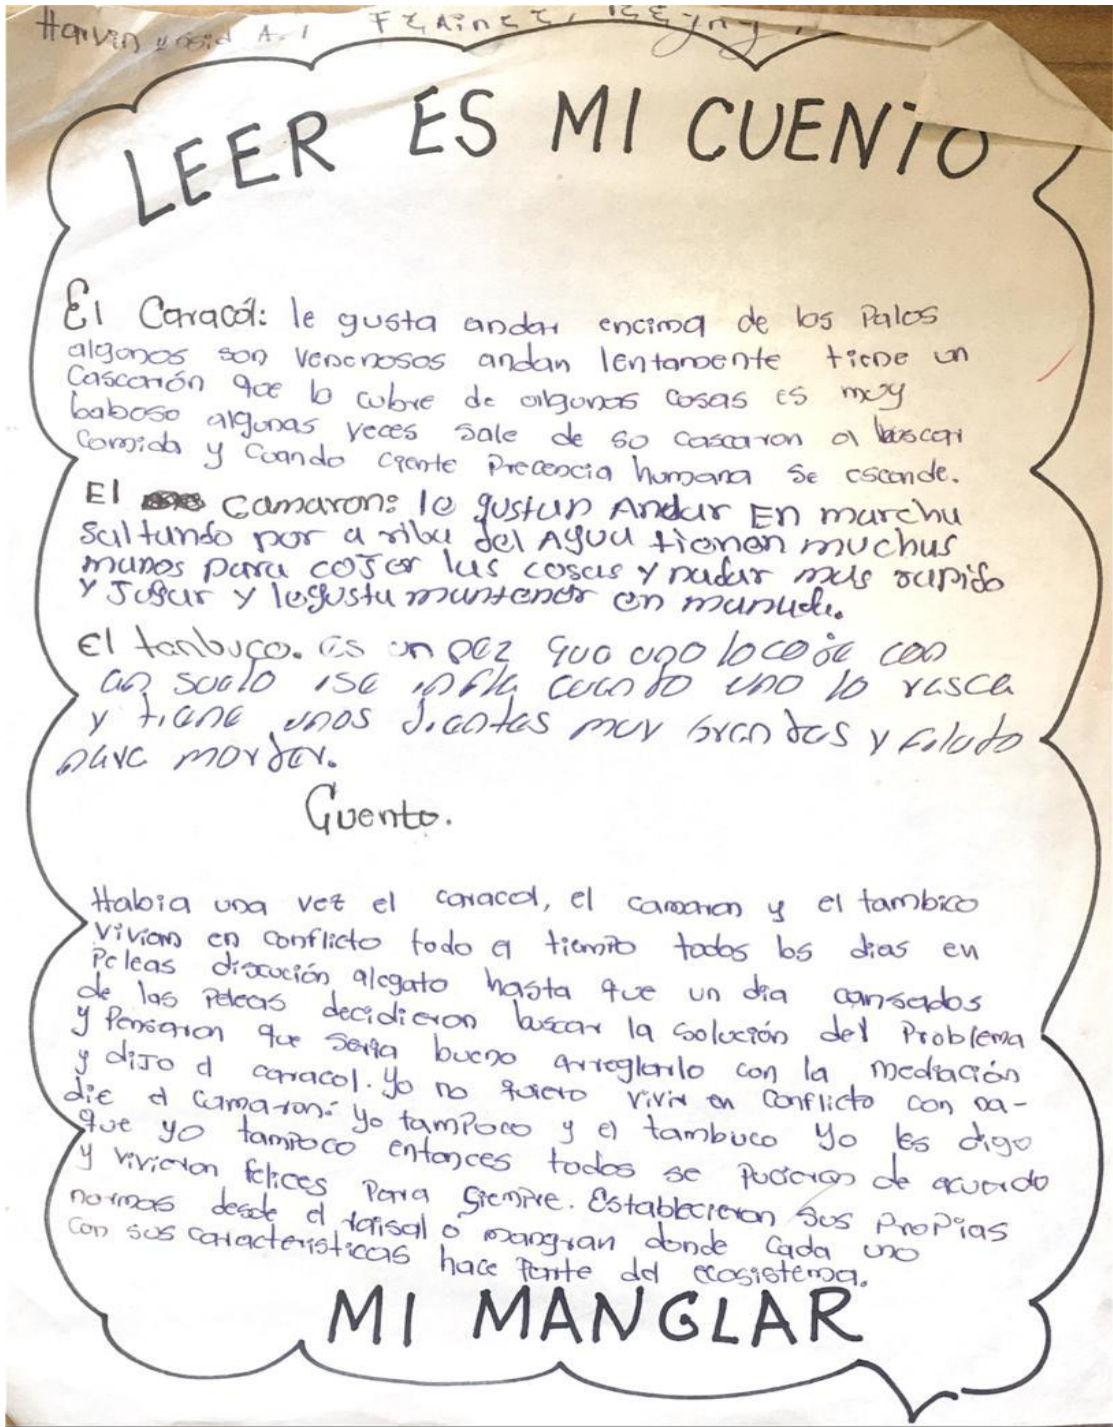 Harvin yesid A.
LEER ES MI CUENTO
El Caracól: le gusta andar encima de los Palos
algonos son venenosos andan lentamente tiene un
Cascarón que lo cubre de algunas cosas es muy
baboso algunas veces sale de so cascaron a buscar
Comida y Cuando ciente Precencia humana se esconde.
El Camaron: le gustan Andar En marcha
Saltando por a riba del Agua tienen muchas
manos para cojer las cosas y nadar mas rapido
y Jugar y legusta mantener en manada.
El tanbuco. es un pez que uno lo coje con
an suelo ise infla cuando uno lo rasca
y tiene unos dientes muy grandes y filudo
para morder.
Cuento.
Habia una vez el caracol, el camaron y el tambico
vivian en conflicto todo el tiempo todos los dias en
Peleas discución alegato hasta que un dia cansados
de las Peleas decidieron buscar la solución del Problema
y Pensaron que seria bueno arreglarlo con la mediación
y dijo el caracol. yo no quiero vivir en conflicto con na-
die el camaron: yo tampoco y el tambuco yo les digo
que yo tampoco entonces todos se pucieron de acuerdo
y vivieron felices Para Siempre. Establecieron sus Propias
normas desde el raisal o mangran donde Cada uno
con sus caracteristicas hace Parte del ecosistema.
MI MANGLAR